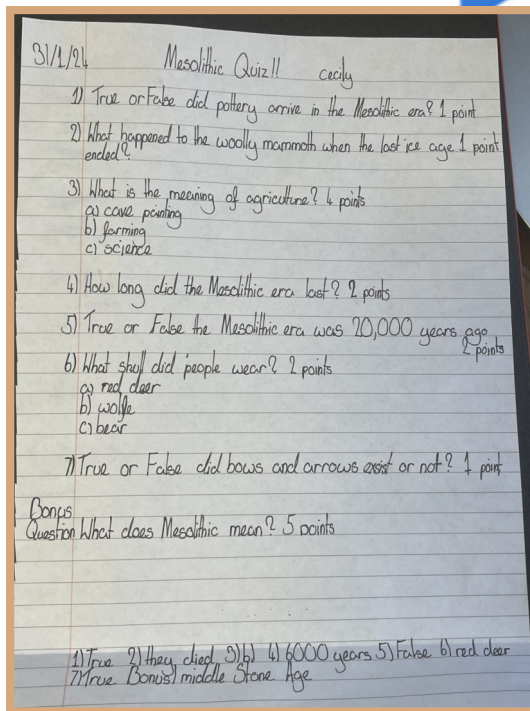 31/1/24 Mesolithic Quiz!! cecily
1) True or False did pottery arrive in the Mesolithic era? 1 point
2) What happened to the woolly mammoth when the last ice age 1 point
ended?
3) What is the meaning of agriculture? 4 points
a) cave painting
b) farming
c) science
4) How long did the Mesolithic era last? 2 points
5) True or False the Mesolithic era was 20,000 years ago
2 points
6) What skull did people wear? 2 points
a) red deer
b) wolfe
c) bear
7) True or False did bows and arrows exsist or not? 1 point
Bonus
Question What does Mesolithic mean? 5 points
1) True 2) they died 3) b) 4) 6000 years 5) False 6) red deer
7) True Bonus) middle Stone Age